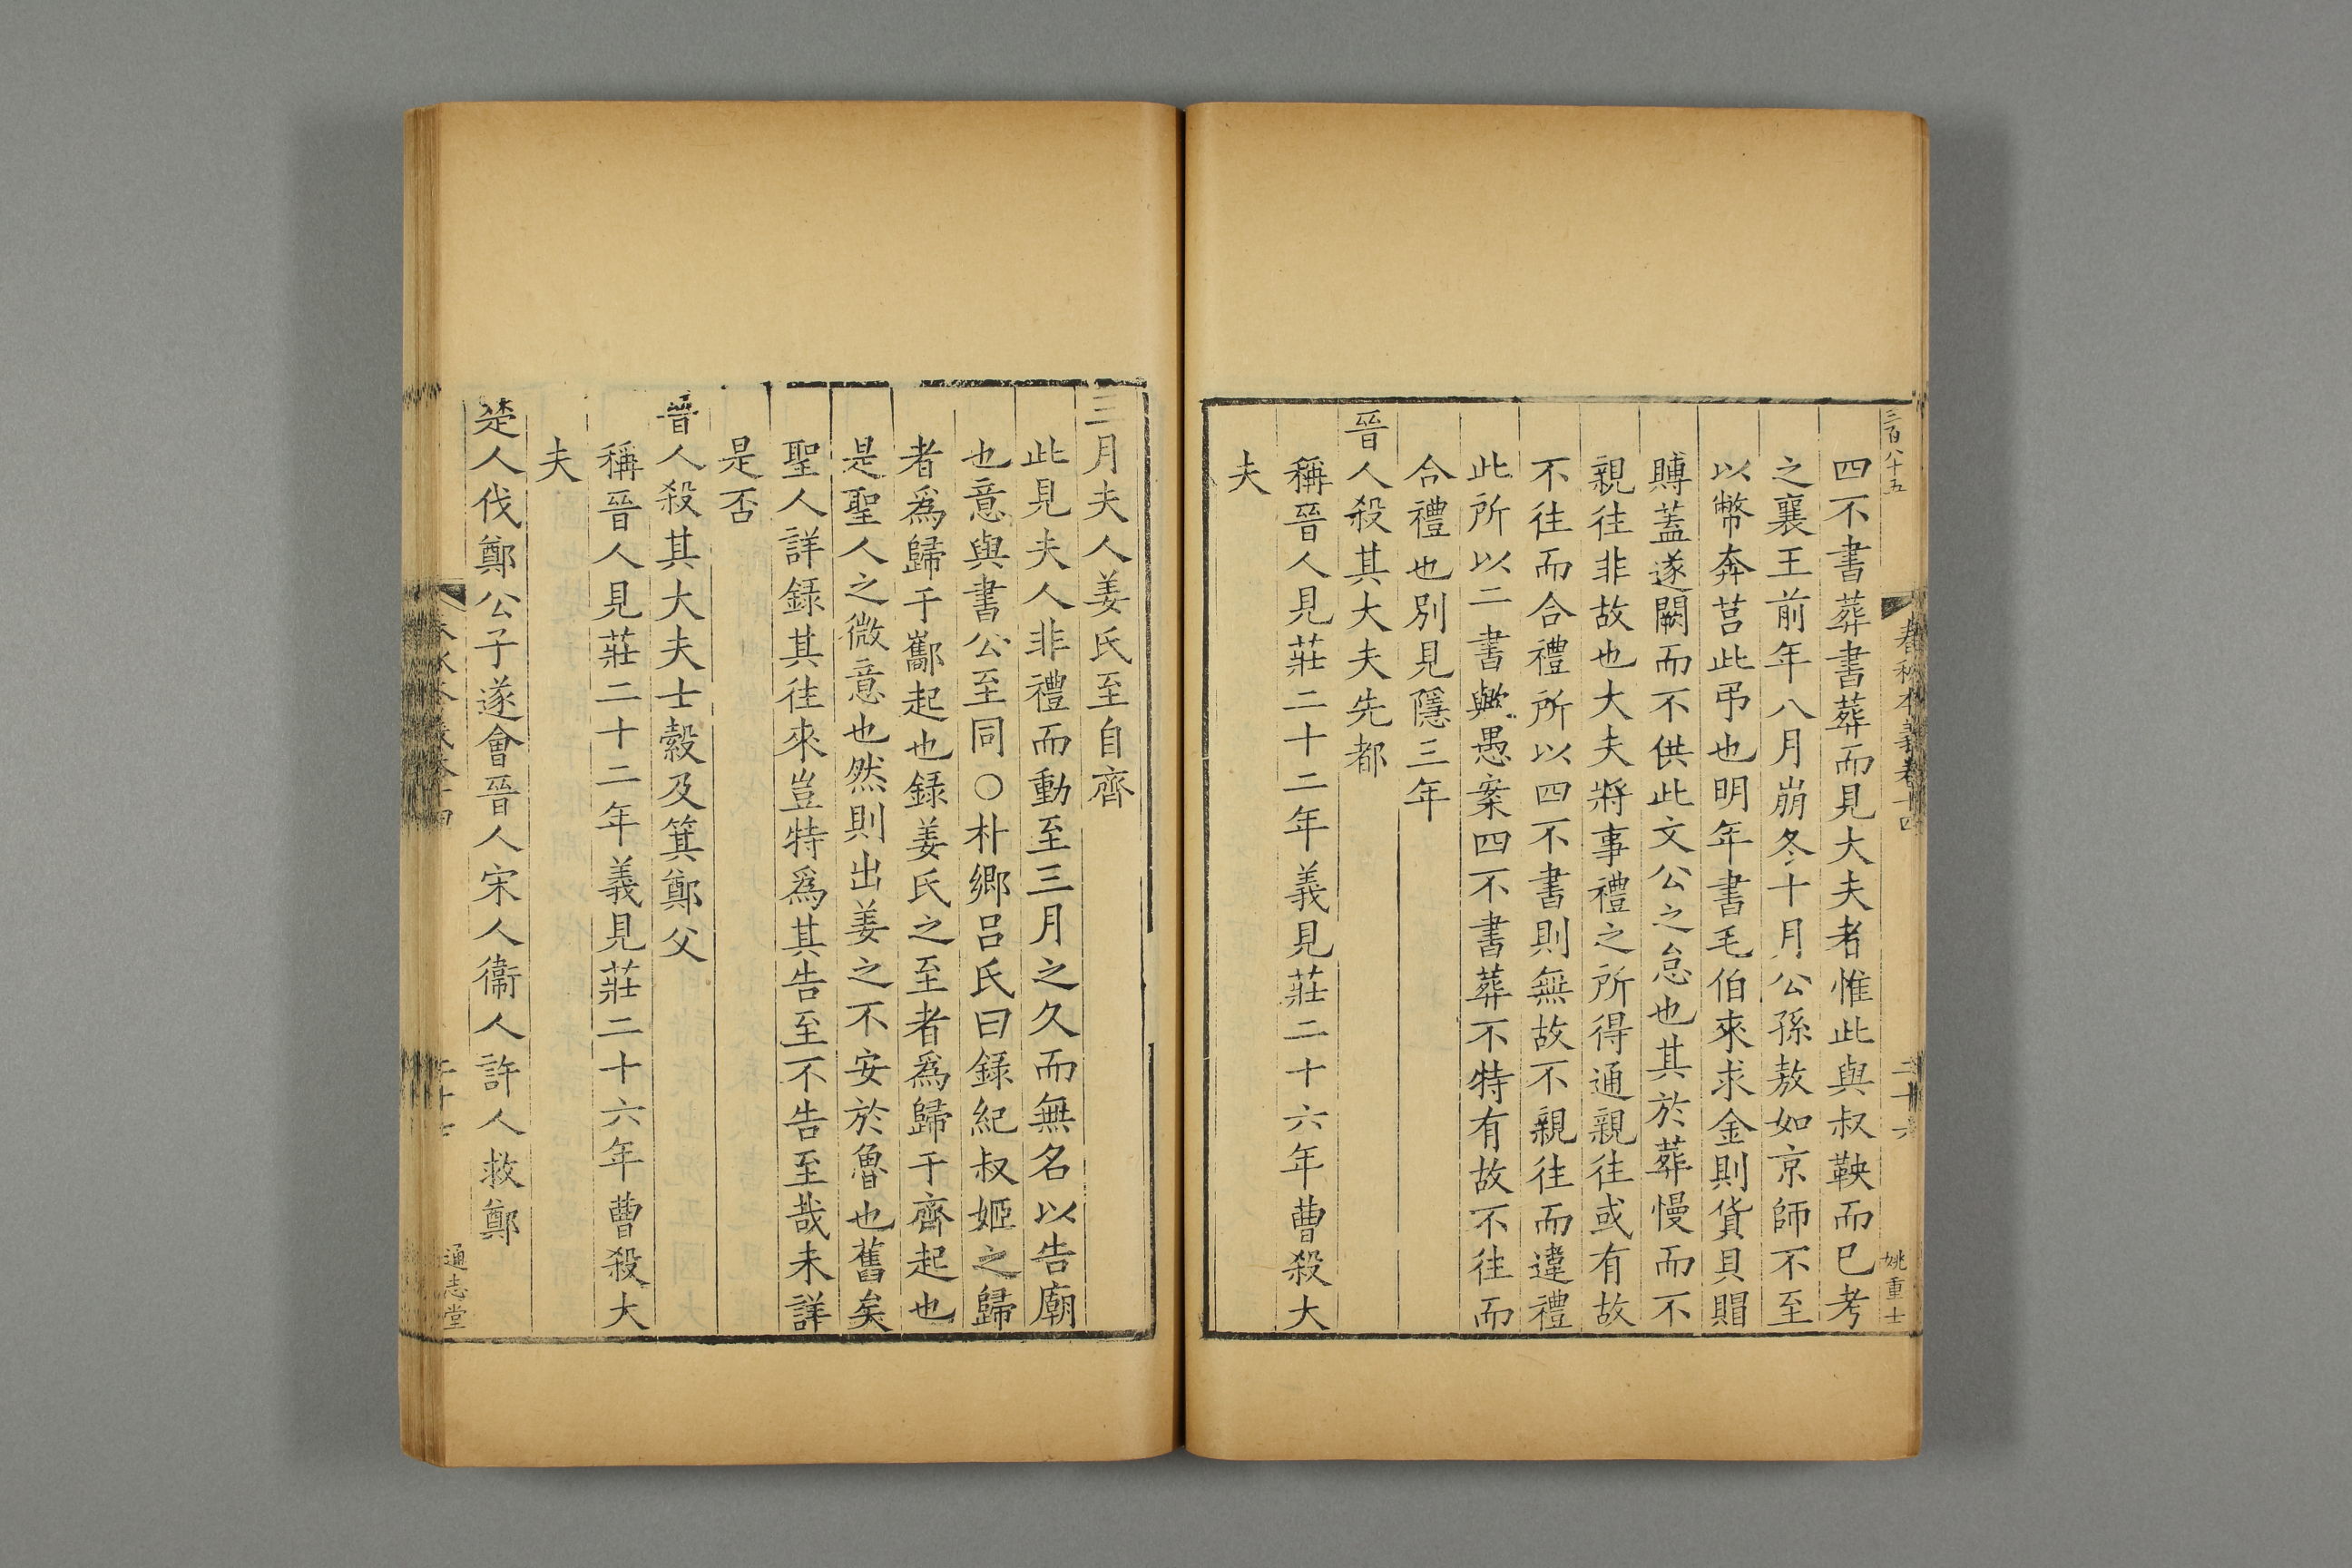 三百八十五
春秋本義卷十四
二十六
姚重士
四不書葬書葬而見大夫者惟此與叔鞅而巳考
之襄王前年八月崩冬十月公孫敖如京師不至
以幣奔莒此弔也明年書毛伯來求金則貨貝賵
賻蓋遂闕而不供此文公之怠也其於葬慢而不
親往非故也大夫將事禮之所得通親往或有故
不往而合禮所以四不書則無故不親往而違禮
此所以二書歟愚案四不書葬不特有故不往而
合禮也別見隱三年
晉人殺其大夫先都
稱晉人見莊二十二年義見莊二十六年曹殺大
夫
三月夫人姜氏至自齊
此見夫人非禮而動至三月之久而無名以告廟
也意與書公至同〇朴鄉呂氏曰錄紀叔姬之歸
者爲歸于酅起也錄姜氏之至者爲歸于齊起也
是聖人之微意也然則出姜之不安於魯也舊矣
聖人詳錄其往來豈特爲其告至不告至哉未詳
是否
晉人殺其大夫士縠及箕鄭父
稱晉人見莊二十二年義見莊二十六年曹殺大
夫
楚人伐鄭公子遂會晉人宋人衞人許人救鄭
通志堂